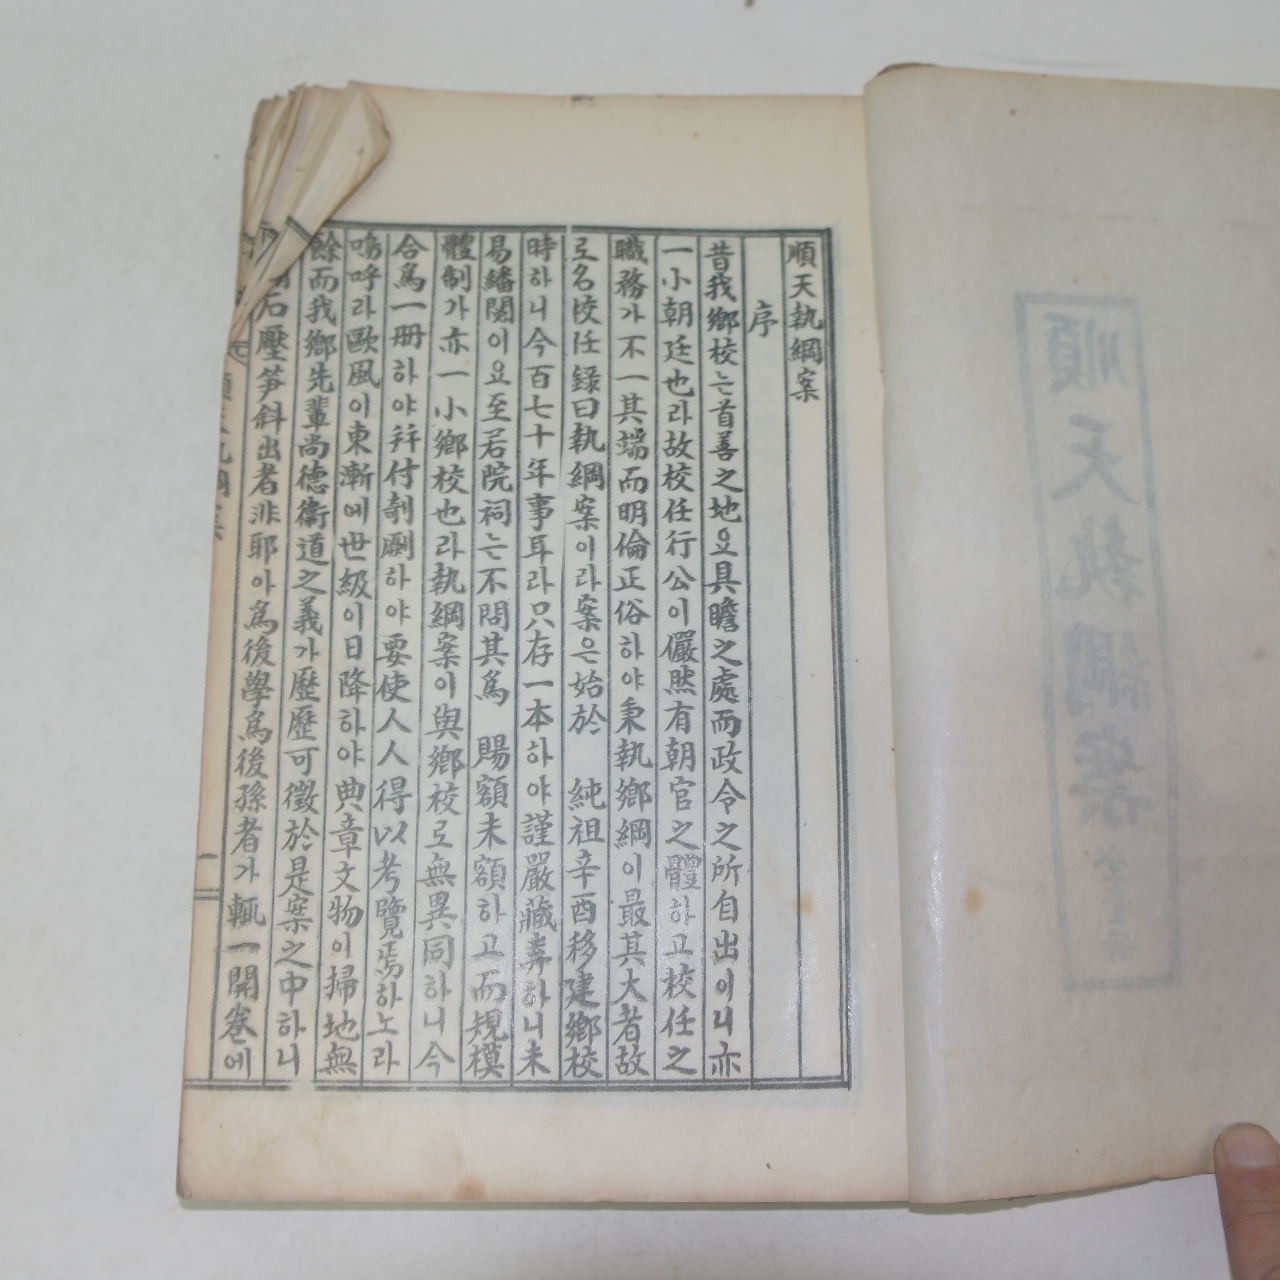 順天執綱案
序
昔我鄕校는首善之地요具瞻之處而政令之所自出이니亦
一小朝廷也라故校任行公이儼然有朝官之體하고校任之
職務가不一其端而明倫正俗하야秉執鄕綱이最其大者故
로名校任錄曰執綱案이라案은始於 純祖辛酉移建鄕校
時하니今百七十年事耳라只存一本하야謹嚴藏弆하니未
易繙閱이요至若院祠는不問其爲 賜額未額하고而規模
體制가亦一小鄕校也라執綱案이與鄕校로無異同하니今
合爲一册하야幷付剞劂하야要使人人得以考覽焉하노라
嗚呼라歐風이東漸에世級이日降하야典章文物이掃地無
餘而我鄕先輩尙德衛道之義가歷歷可徵於是案之中하니
石壓笋斜出者非耶아爲後學爲後孫者가輒一開卷에
順天執綱案
一
順天執綱案